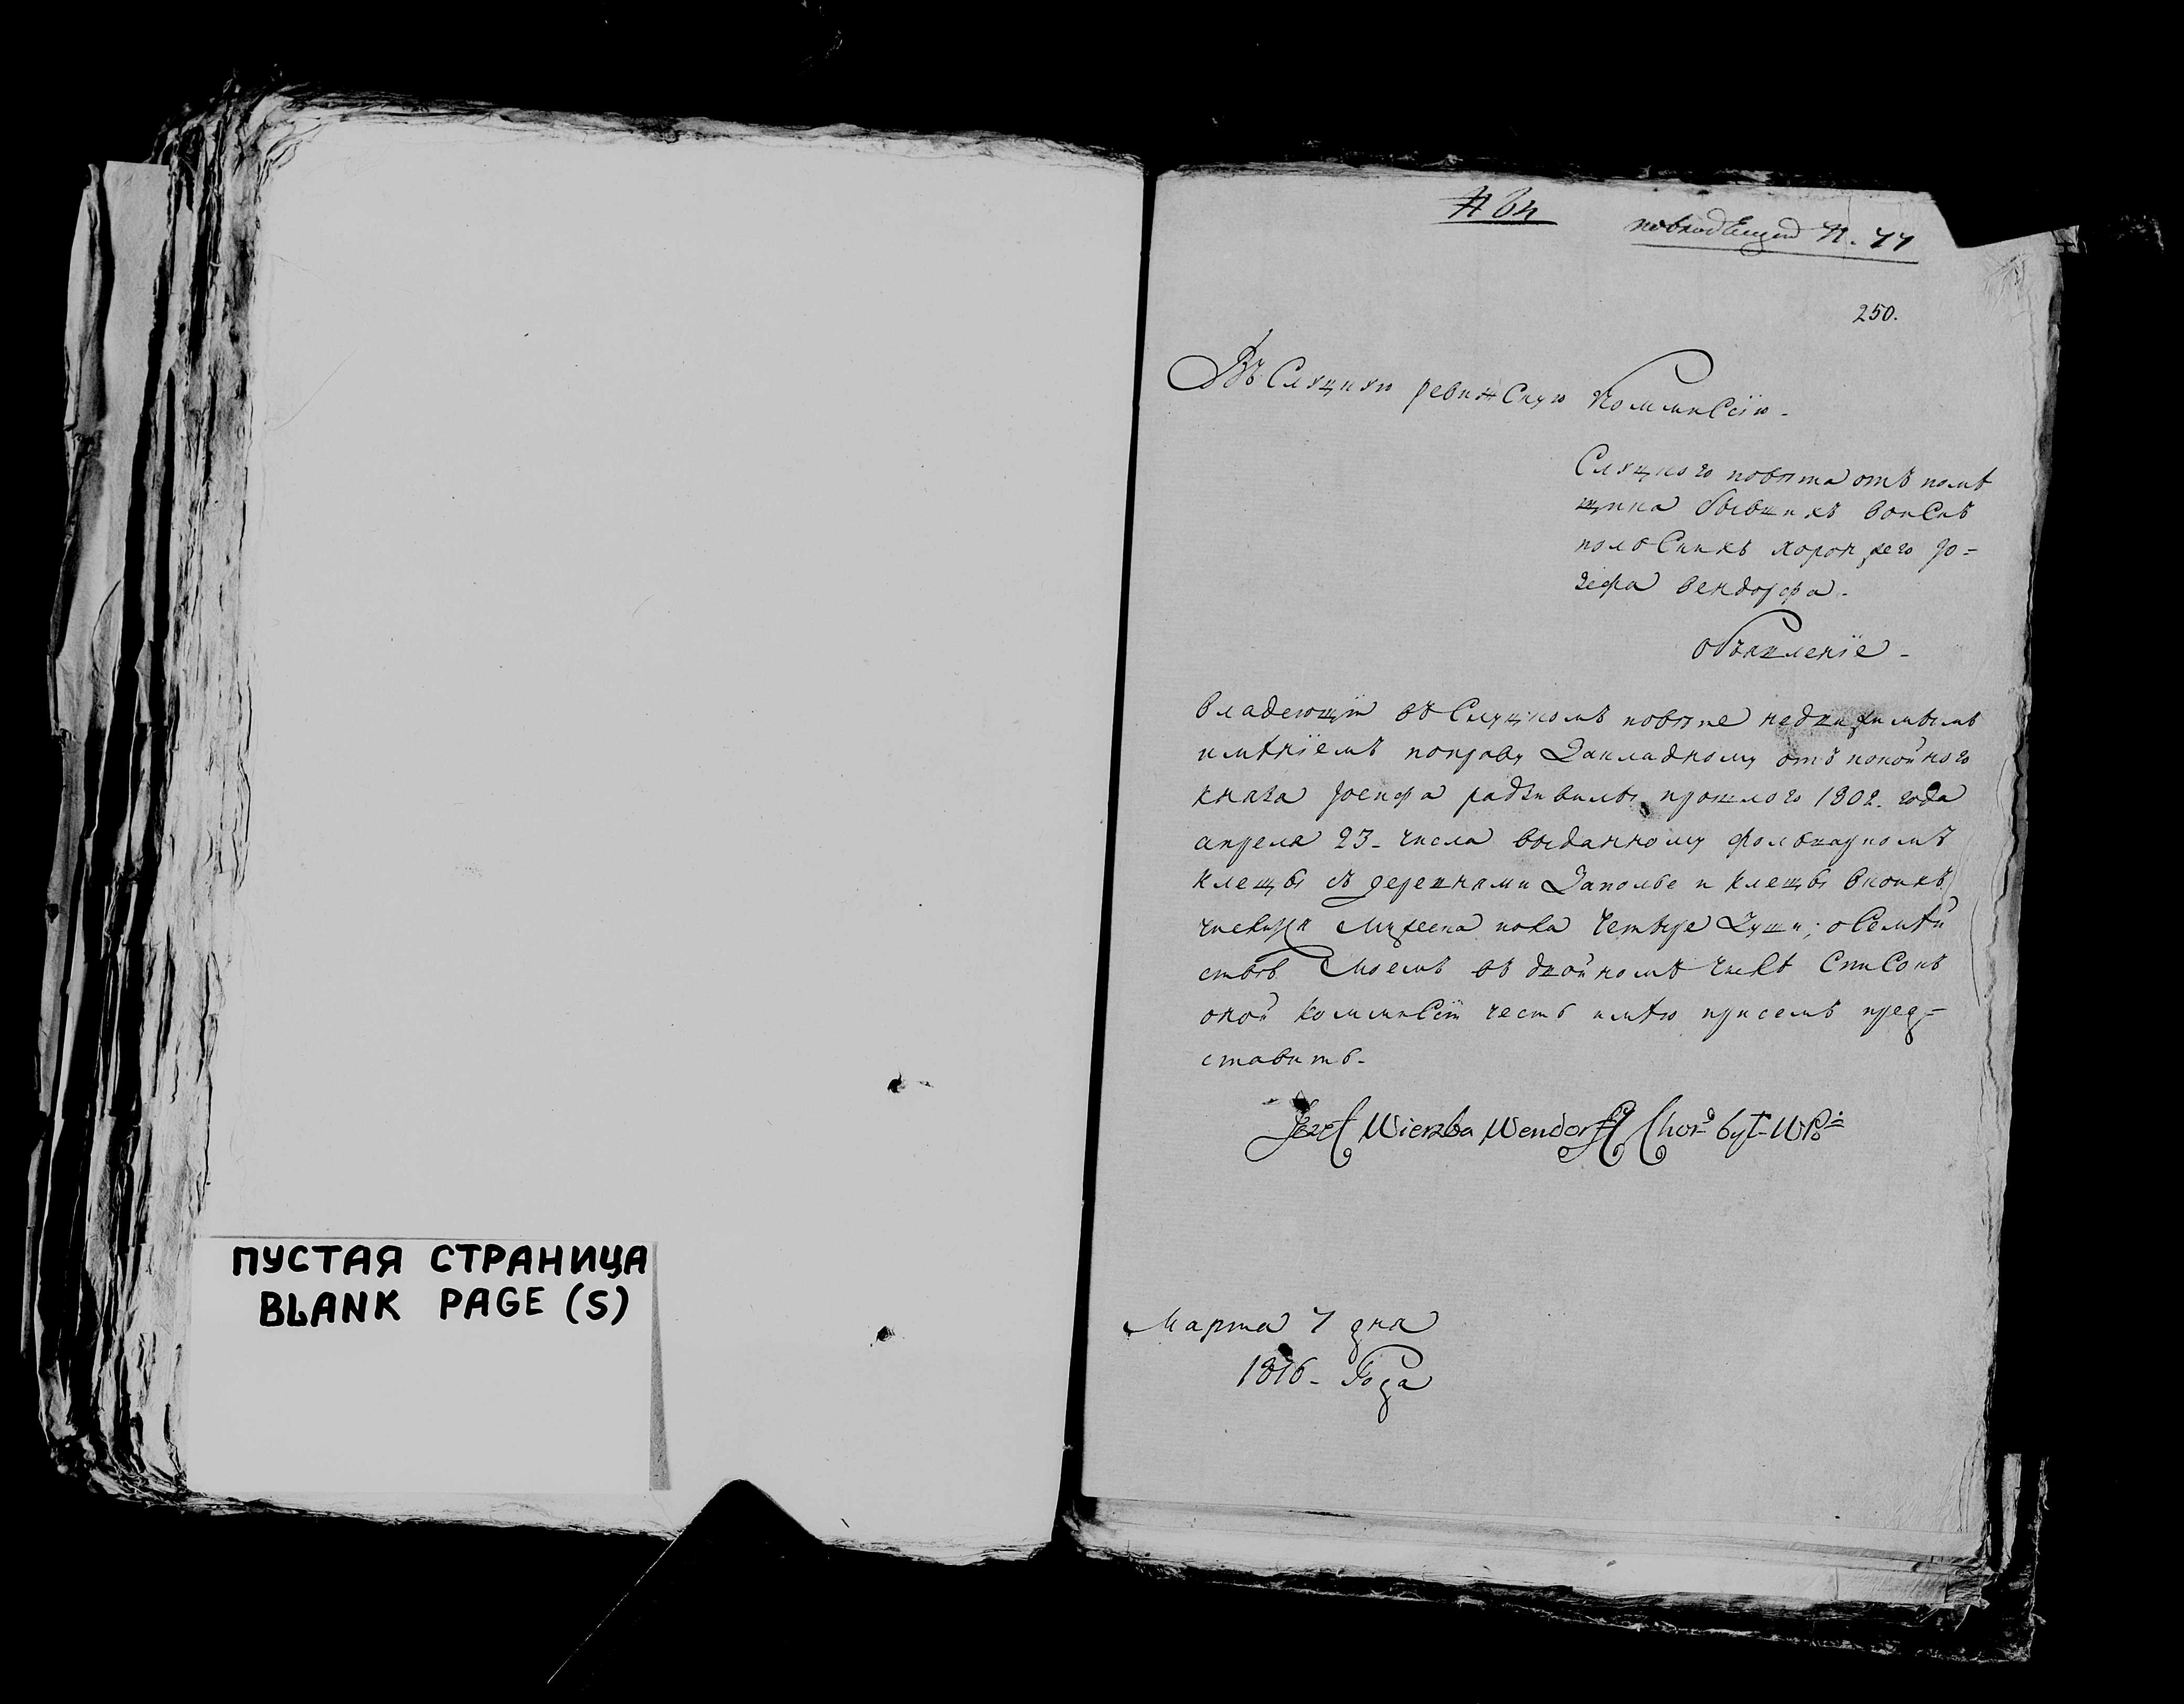 ПУСТАЯ СТРАНИЦА
BLANK PAGE (S)
№ 64
по входящей №. 77
250.
Въ Слуцкую ревижскую Коммисїю.
Слуцкого повѣта отъ помѣ
щика бывшихъ войскъ
польскихъ хорунжего Iо-
зефа Вендорфа.
объявленїе.
владеющїй въ Слуцкомъ повѣте недвижимымъ
имѣнїемъ по праву Закладному отъ покойного
князя Iосифа радзивилы прошлого 1802. года
апреля 23. числа выданному фольваркомъ
клещы съ деревнями Заполье и клещы в коихъ
мужеска пола четыре Души; о Семѣй
стве Моемъ въ двойномъ числѣ Списокъ
оной Коммисїи честь имѣю присемъ пред-
ставить.
Jozef Wierzba Wendorff Chor. był. WP.
Марта 7 дня
1816. Года